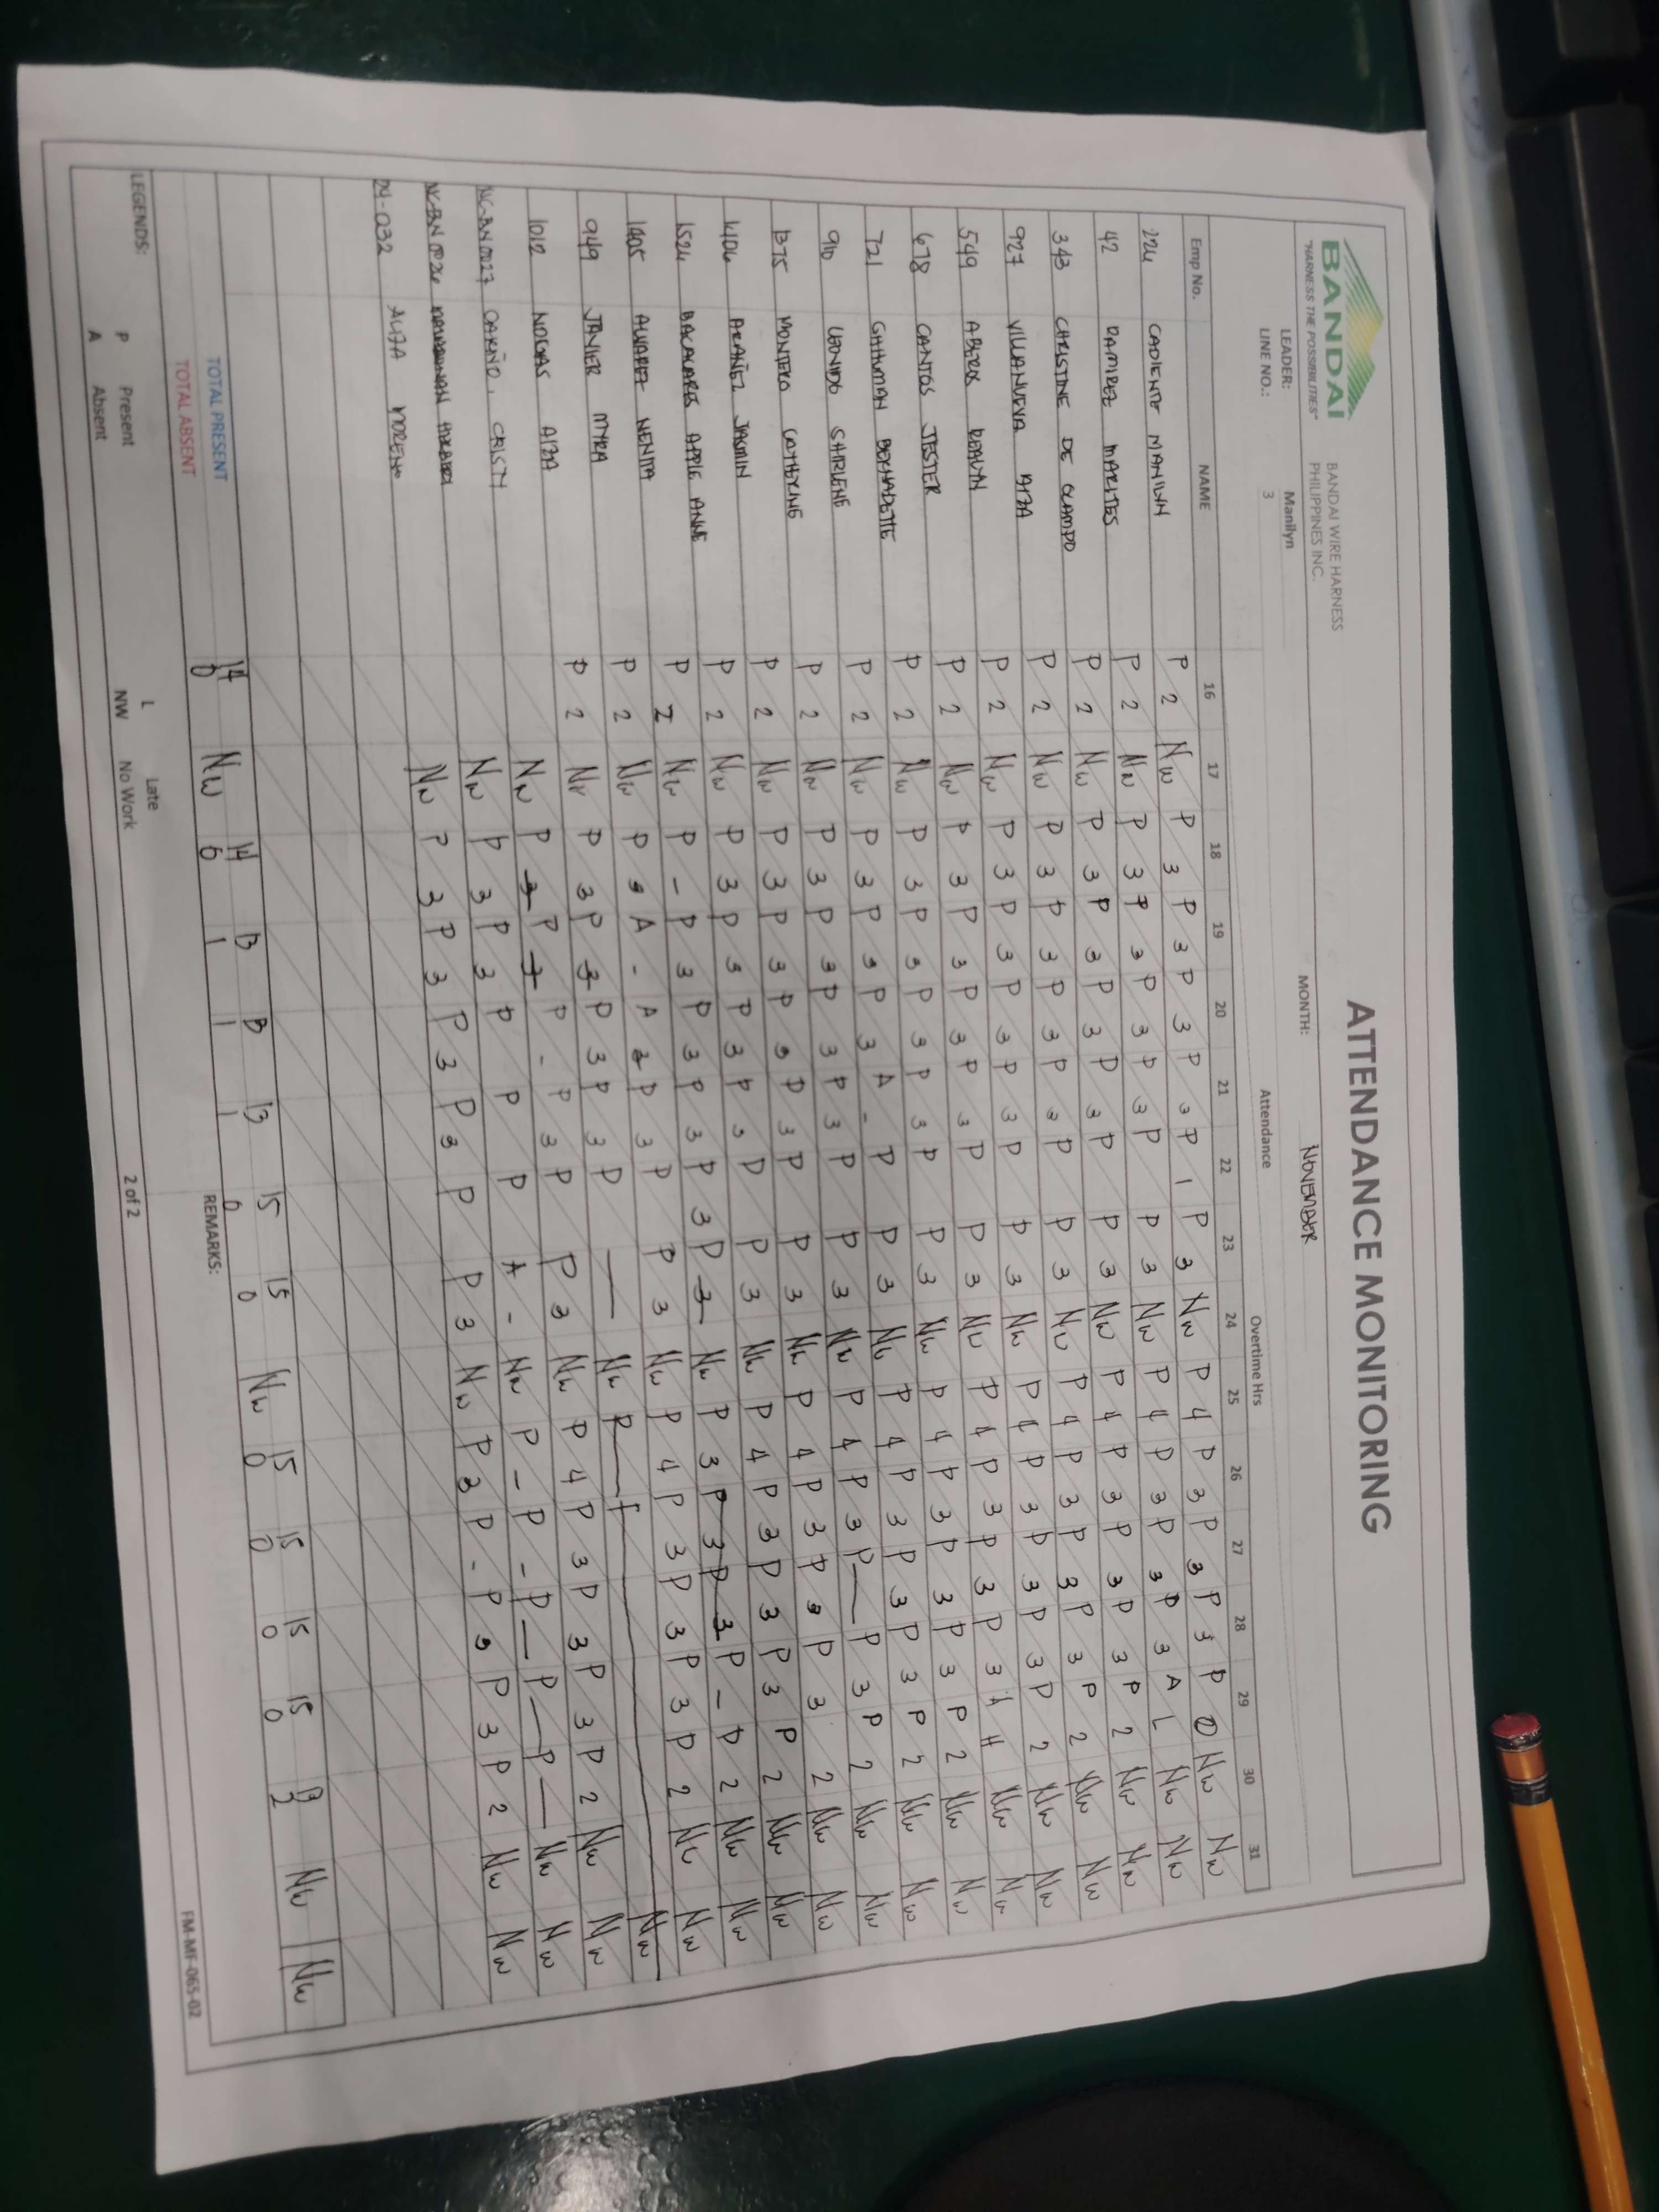 BANDAI
"HARNESS THE POSSIBILITIES"
BANDAI WIRE HARNESS
PHILIPPINES INC.
ATTENDANCE MONITORING
LEADER: Manilyn
LINE NO.: 3
MONTH: NOVEMBER
Attendance Overtime Hrs
Emp No. NAME 16 17 18 19 20 21 22 23 24 25 26 27 28 29 30 31
224 CADIENTE MANILYN P 2 NW P 3 P 3 P 3 P 3 P 1 P 3 NW P 4 P 3 P 3 P 3 P NW NW
42 RAMIREZ MARITES P 2 NW P 3 P 3 P 3 P 3 P P 3 NW P 4 P 3 P 3 P 3 A L NW NW
343 CHRISTINE DE OCAMPO P 2 NW P 3 P 3 P 3 P 3 P P 3 NW P 4 P 3 P 3 P 3 P 2 NW NW
927 VILLANUEVA AIZA P 2 NW P 3 P 3 P 3 P 3 P P 3 NW P 4 P 3 P 3 P 3 P 2 NW NW
549 P 2 NW P 3 P 3 P 3 P 3 P P 3 NW P 4 P 3 P 3 P 3 P 2 NW NW
678 CANTOS JESTER P 2 NW P 3 P 3 P 3 P 3 P P 3 NW P 4 P 3 P 3 P 3 NW NW
721 BERNADETTE P 2 NW P 3 P 3 P 3 P 3 P P 3 NW P 4 P 3 P 3 P 3 P 2 NW NW
910 SHIRLENE P 2 NW P 3 P 3 P 3 A - P P 3 NW P 4 P 3 P 3 P 3 P 2 NW NW
1375 MONTERO CATHERINE P 2 NW P 3 P 3 P 3 P 3 P P 3 NW P 4 P 3 P — P 3 P 2 NW NW
1404 ARAÑEZ JASMIN P 2 NW P 3 P 3 P 3 P 3 P P 3 NW P 4 P 3 P 3 P 3 2 NW NW
1524 BACALARES APPLE ANNE P 2 NW P 3 P 3 P 3 P 3 P P 3 NW P 4 P 3 P 3 P 3 P 2 NW NW
1405 ALVAREZ NENITA P 2 NW P - P 3 P 3 P 3 P 3 P 3 NW P 3 P 3 P 3 P - P 2 NW NW
949 JANIER MYRA P 2 NW P 3 A - A P 3 P P 3 NW P 4 P 3 P 3 P 3 P 2 NW NW
1012 NOGAS AIZA P 2 P 3 P 3 P 3 P 3 P — NW P — NW
NC-BN0027 CARIÑO, CRISTY NW P 3 P P - P 3 P P 3 NW P 4 P 3 P 3 P 3 P 2 NW NW
NW P 3 P 3 P P P A - NW P - P - P — P — P — NW NW
24-0232 ALIZA MORENO NW P 3 P 3 P 3 P 3 P P 3 NW P 3 P - P 3 P 3 P 2 NW NW
TOTAL PRESENT 14 NW 14 13 13 13 15 15 NW 15 15 15 15 13 NW NW
TOTAL ABSENT 0 0 1 1 1 0 0 0 0 0 0 2
REMARKS:
LEGENDS:
P Present
A Absent
L Late
NW No Work
2 of 2
FM-MF-065-02